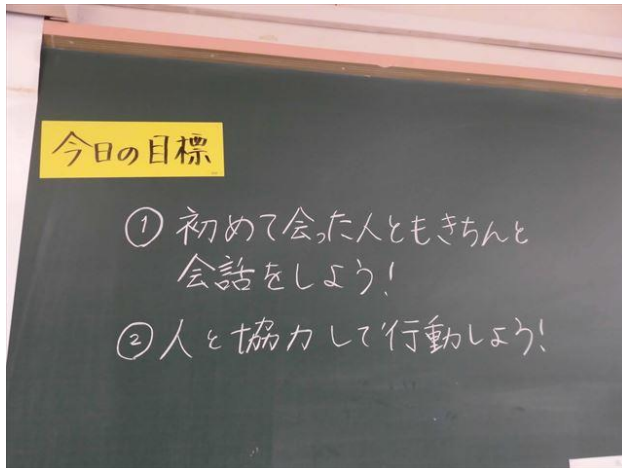 今日の目標
① 初めて会った人ともきちんと
会話をしよう!
② 人と協力して行動しよう!